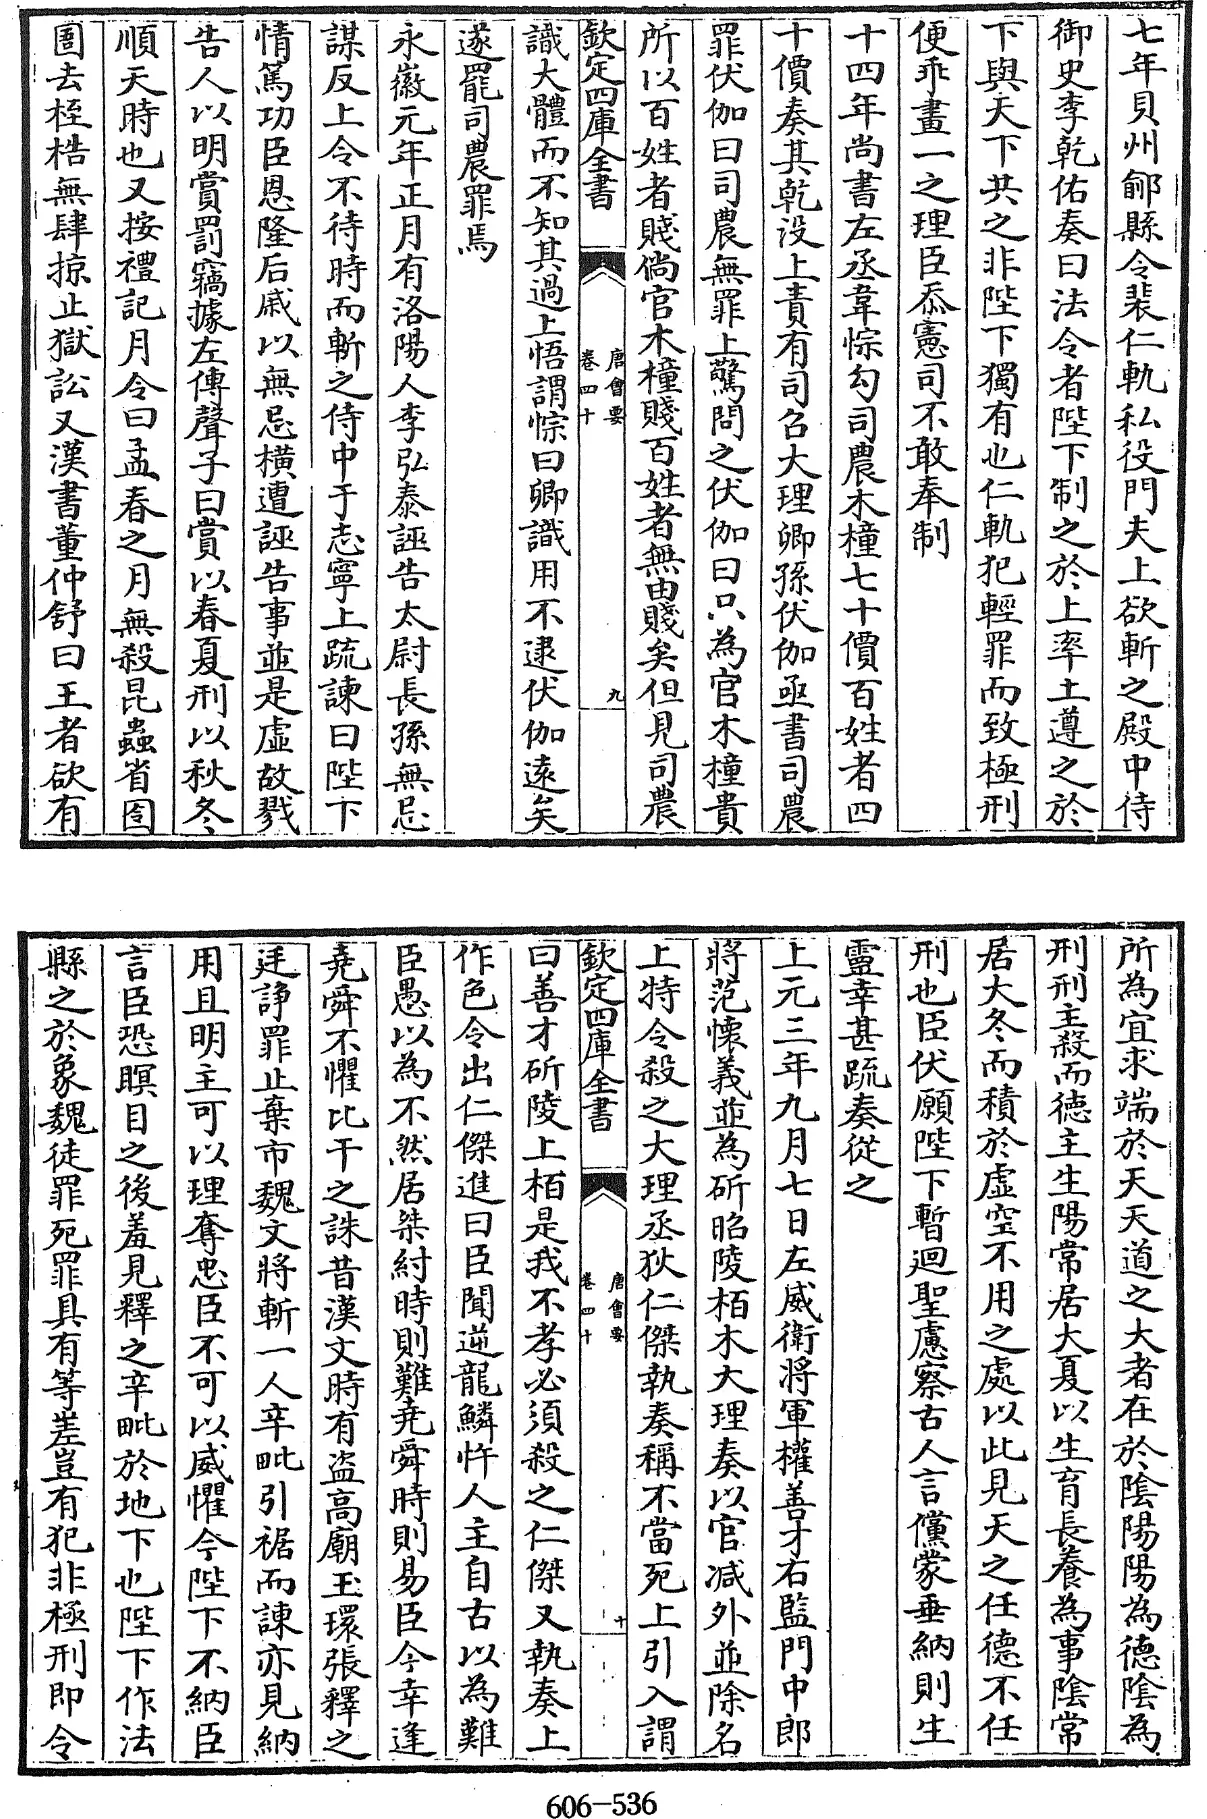 七年貝州鄃縣令裴仁軌私役門夫上欲斬之殿中侍
御史李乾佑奏曰法令者陛下制之於上率土遵之於
下與天下共之非陛下獨有也仁軌犯輕罪而致極刑
便乖畫一之理臣忝憲司不敢奉制
十四年尚書左丞韋悰勾司農木橦七十價百姓者四
十價奏其乾没上責有司召大理卿孫伏伽亟書司農
罪伏伽曰司農無罪上驚問之伏伽曰只為官木橦貴
所以百姓者賤倘官木橦賤百姓者無由賤矣但見司農
欽定四庫全書
唐會要
卷四十
九
識大體而不知其過上悟謂悰曰卿識用不逮伏伽遠矣
遂罷司農罪焉
永徽元年正月有洛陽人李弘泰誣告太尉長孫無忌
謀反上令不待時而斬之侍中于志寧上疏諫曰陛下
情篤功臣恩隆后戚以無忌橫遭誣告事並是虛故戮
告人以明賞罰竊據左傳聲子曰賞以春夏刑以秋冬
順天時也又按禮記月令曰孟春之月無殺昆蟲省囹
圄去桎梏無肆掠止獄訟又漢書董仲舒曰王者欲有
所為宜求端於天天道之大者在於陰陽陽為德陰為
刑刑主殺而德主生陽常居大夏以生育長養為事陰常
居大冬而積於虛空不用之處以此見天之任德不任
刑也臣伏願陛下暫迴聖慮察古人言儻蒙垂納則生
靈幸甚疏奏從之
上元三年九月七日左威衛將軍權善才右監門中郎
將范懷義並為斫昭陵栢木大理奏以官減外並除名
上特令殺之大理丞狄仁傑執奏稱不當死上引入謂
欽定四庫全書
唐會要
卷四十
十
曰善才斫陵上栢是我不孝必須殺之仁傑又執奏上
作色令出仁傑進曰臣聞逆龍鱗忤人主自古以為難
臣愚以為不然居桀紂時則難堯舜時則易臣今幸逢
堯舜不懼比干之誅昔漢文時有盜高廟玉環張釋之
廷諍罪止棄市魏文將斬一人辛毗引裾而諫亦見納
用且明主可以理奪忠臣不可以威懼今陛下不納臣
言臣恐瞑目之後羞見釋之辛毗於地下也陛下作法
縣之於象魏徒罪死罪具有等差豈有犯非極刑即令
606-536